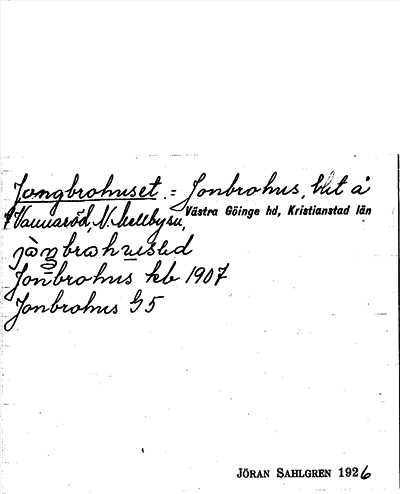 Jongbrohuset = Jonbrohus, bht å
Vannaröd, N. Mellby sn,
Västra Göinge hd, Kristianstad län
Jonbrohus kb 1907
Jonbrohus G 5
JÖRAN SAHLGREN 1926